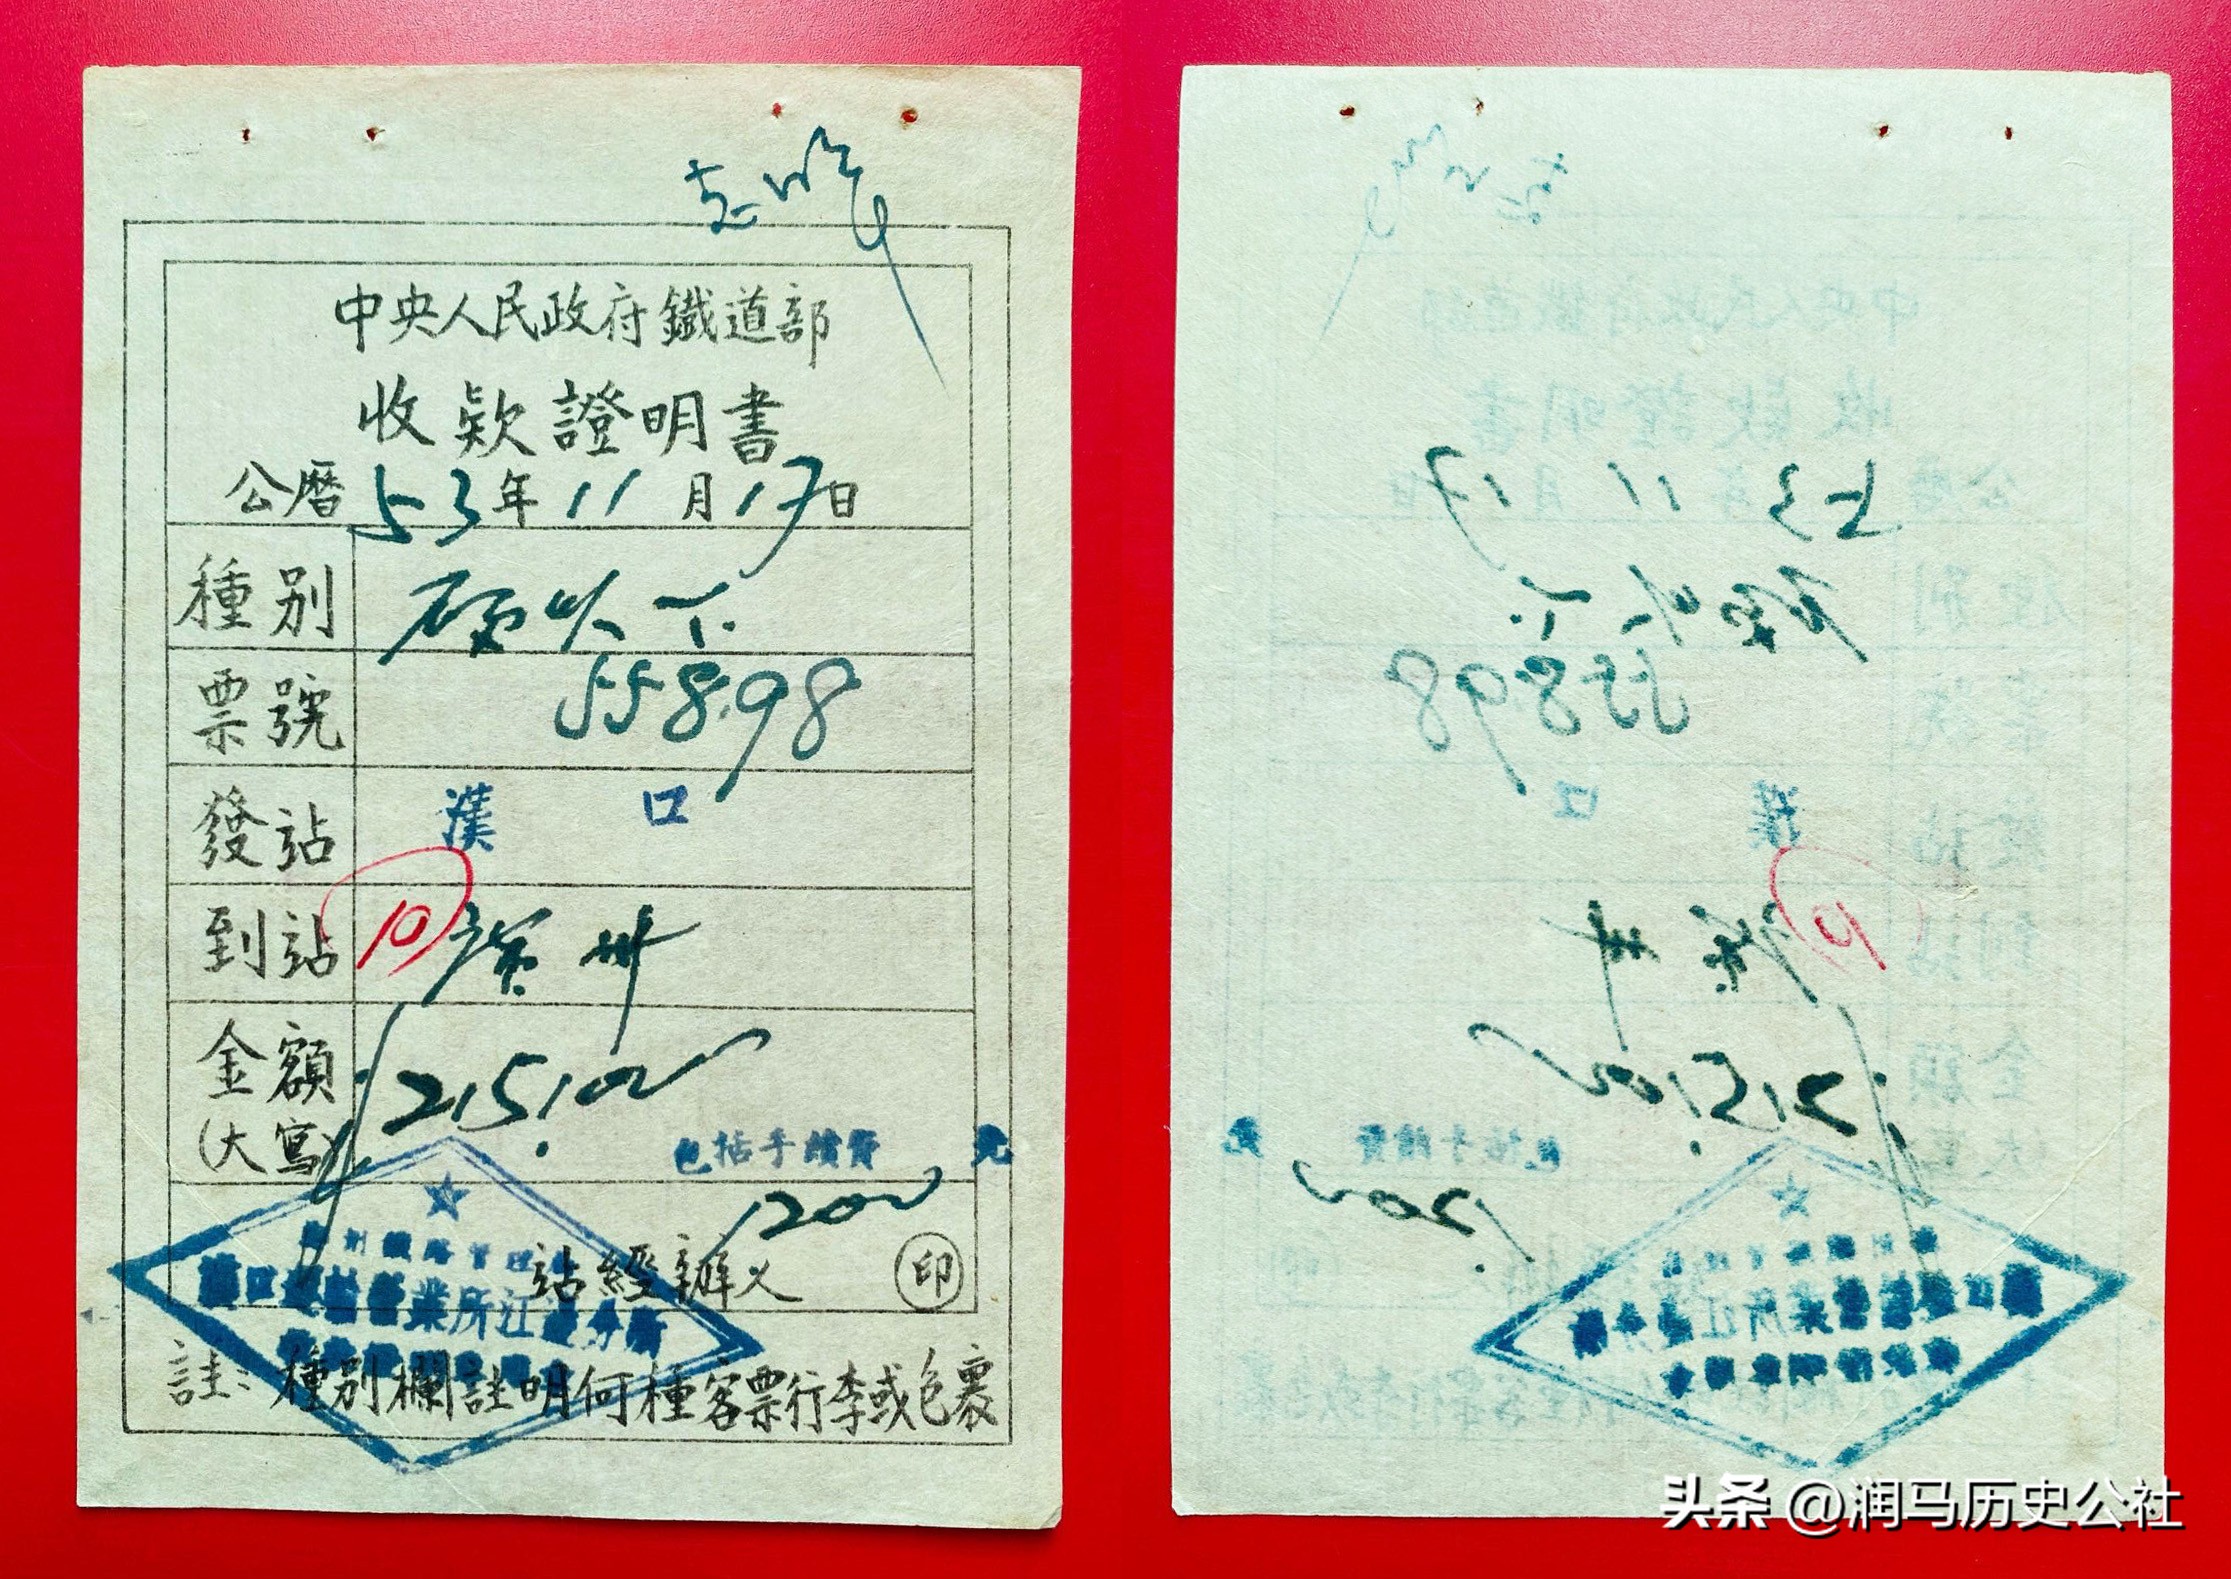 中央人民政府鐵道部
收欵證明書
公曆53年11月17日
種別 硬卧下
票號 55898
發站 漢口
到站 廣州
10
金額
(大寫)
215,100
包括手續費 元
1200
站經辦人 印
業所江
註:種別欄註明何種客票行李或包裹
头条 @润马历史公社